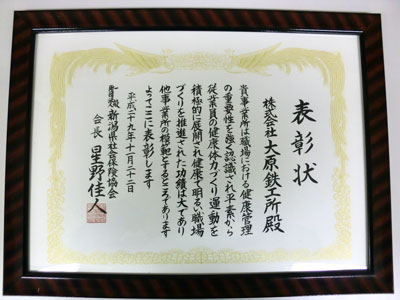 表彰状
株式会社大原鉄工所殿
貴事業所は職場における健康管理
の重要性を強く認識され平素から
従業員の健康体力づくり運動を
積極的に展開され健康で明るい職場
づくりを推進された功績は大であり
他事業所の模範とするところであります
よってここに表彰します
平成二十九年十一月二十二日
新潟県社会保険協会
会長 星野佳人